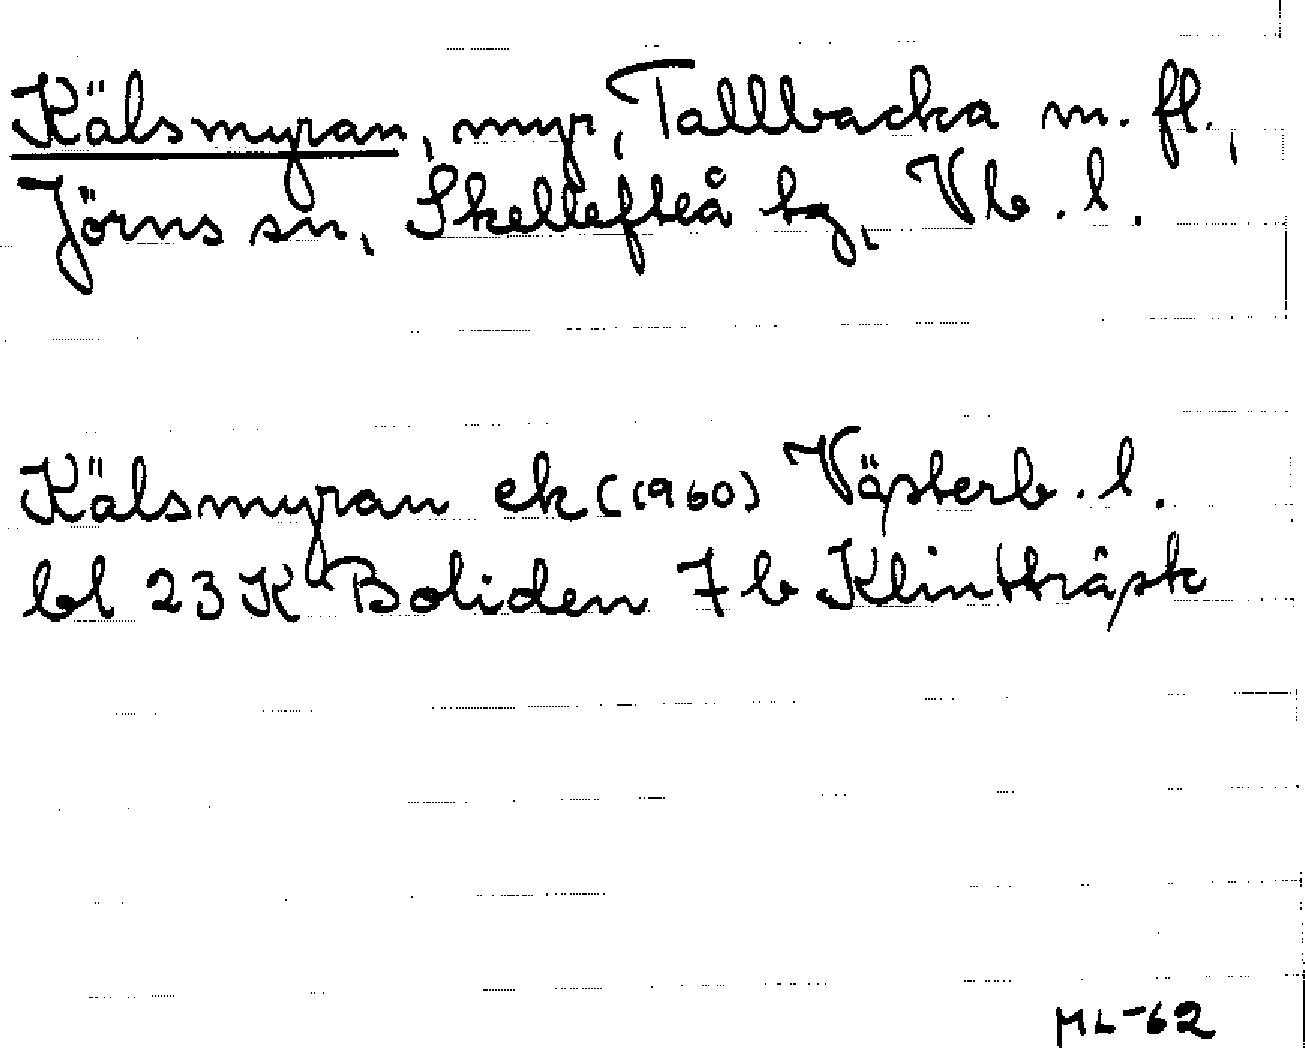 Kälsmyran, myr, Tallbacka m. fl.,
Jörns sn, Skellefteå tg, Vb. l.
Kälsmyran ek (1960) Västerb. l.
bl 23 K Boliden 7 b Klintträsk
ML-62